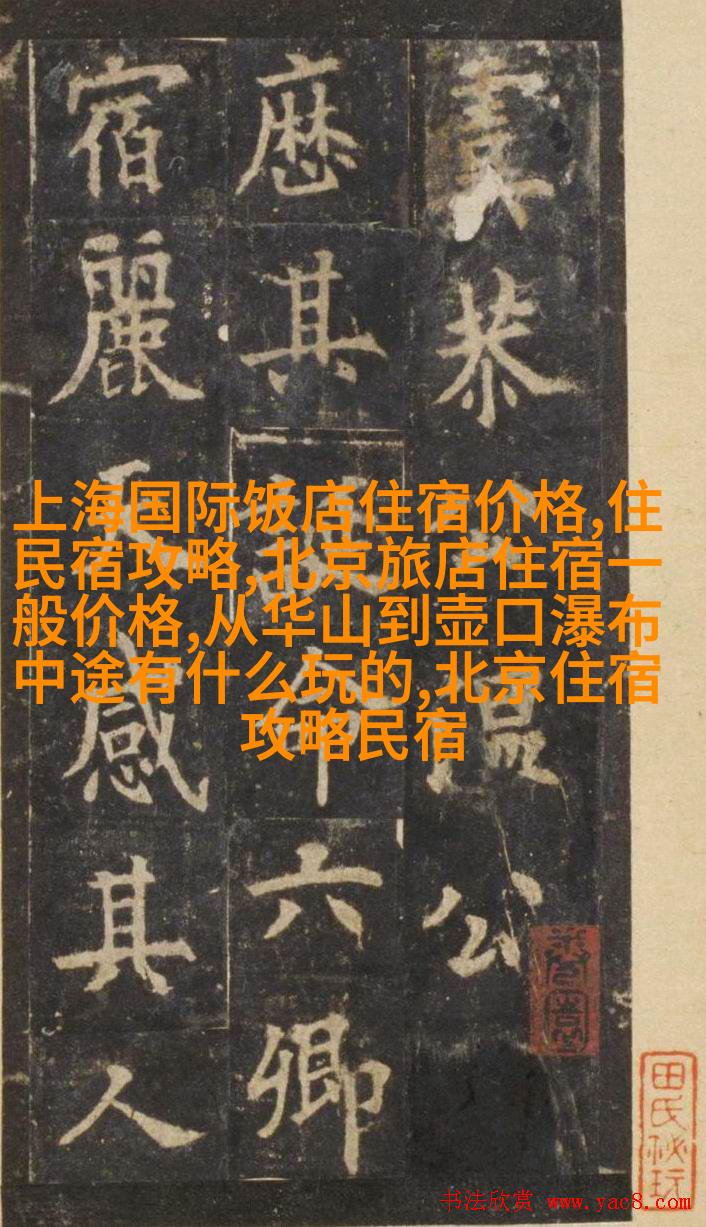 恭温公
厯其命六卿
宿麗感其人
上海国际饭店住宿价格,住
民宿攻略,北京旅店住宿一
般价格,从华山到壶口瀑布
中途有什么玩的,北京住宿
攻略民宿
田氏秘玩
书法欣赏 www.yac8.com